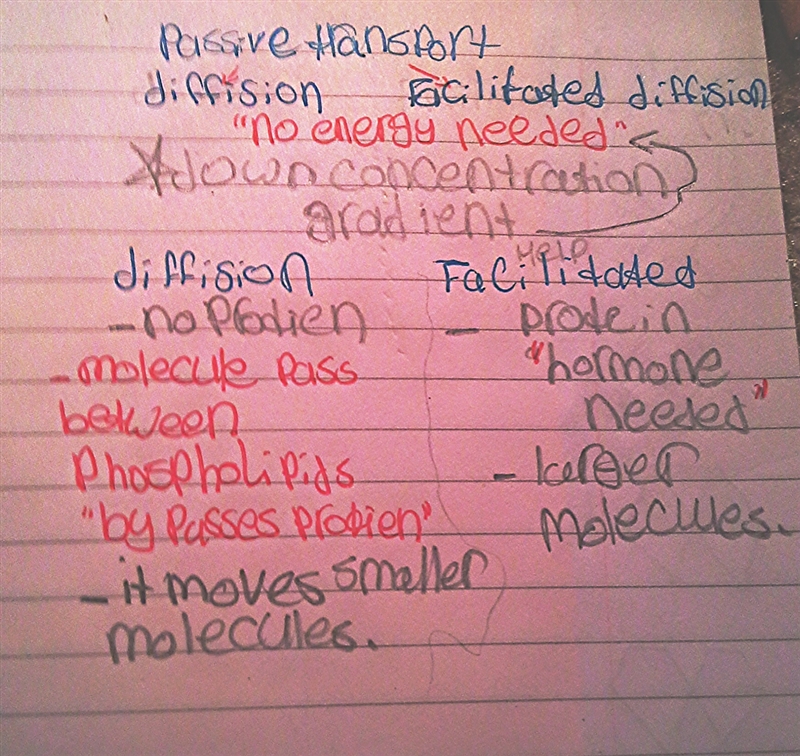 Passive transport
diffision Facilitated diffision
"no energy needed"
down concentration
gradient
diffision Facilitated
HELP
- no Protien - protein
- molecule pass "hormone
between needed"
Phospholipids - larger
"by Passes protien" molecules.
- it moves smaller
molecules.